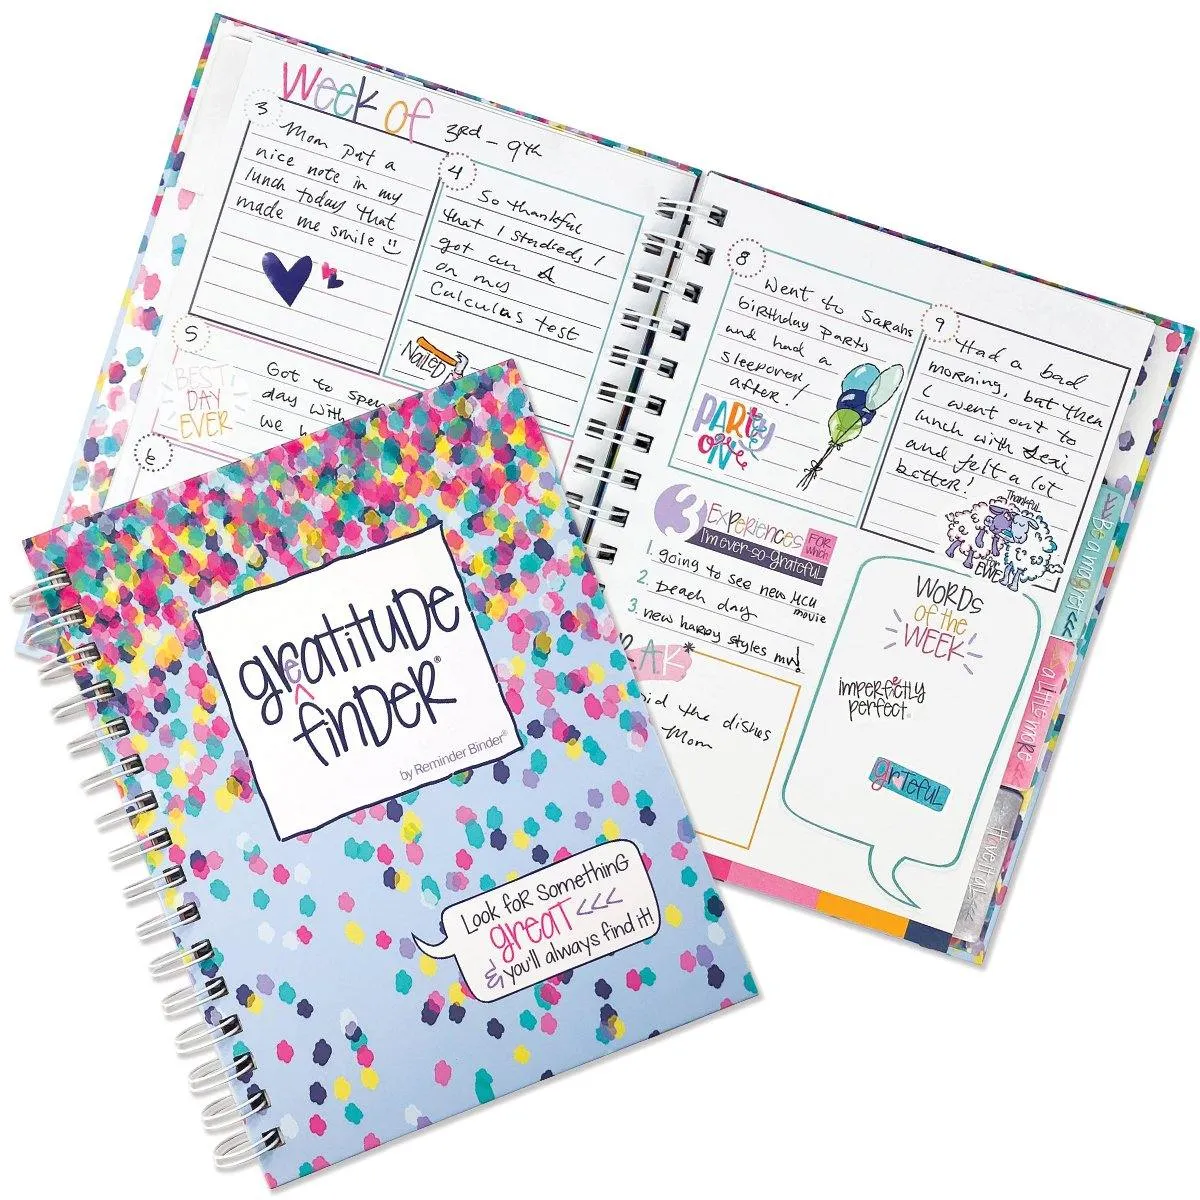 Week of 3rd - 9th
3
Mom put a
nice note in my
lunch today that
made me smile
4
So thankful
that I studieds I
got an A
on my
Calculas test
NaileD
5
BEST
DAY
EVER
Got to
day with
we
6
8
Went to Sarahs
birthday party
and had a
sleepover
after!
PARTY
ON
9
Had a bad
morning, but then
I went out to
lunch with
and felt a lot
better!
Thankful
EWE
3 Experiences FOR which
I'm ever-so-grateful
1. going to see new MCU
movie
2. Beach day
3. new harry styles mv!
AK*
the dishes
Mom
WORDS
of the
WEEK
imperfectly
perfect
grateful
Be a magnet
a little more
gratitude
e
^
finder®
by Reminder Binder®
Look for something
great <<<
& you'll always find it!